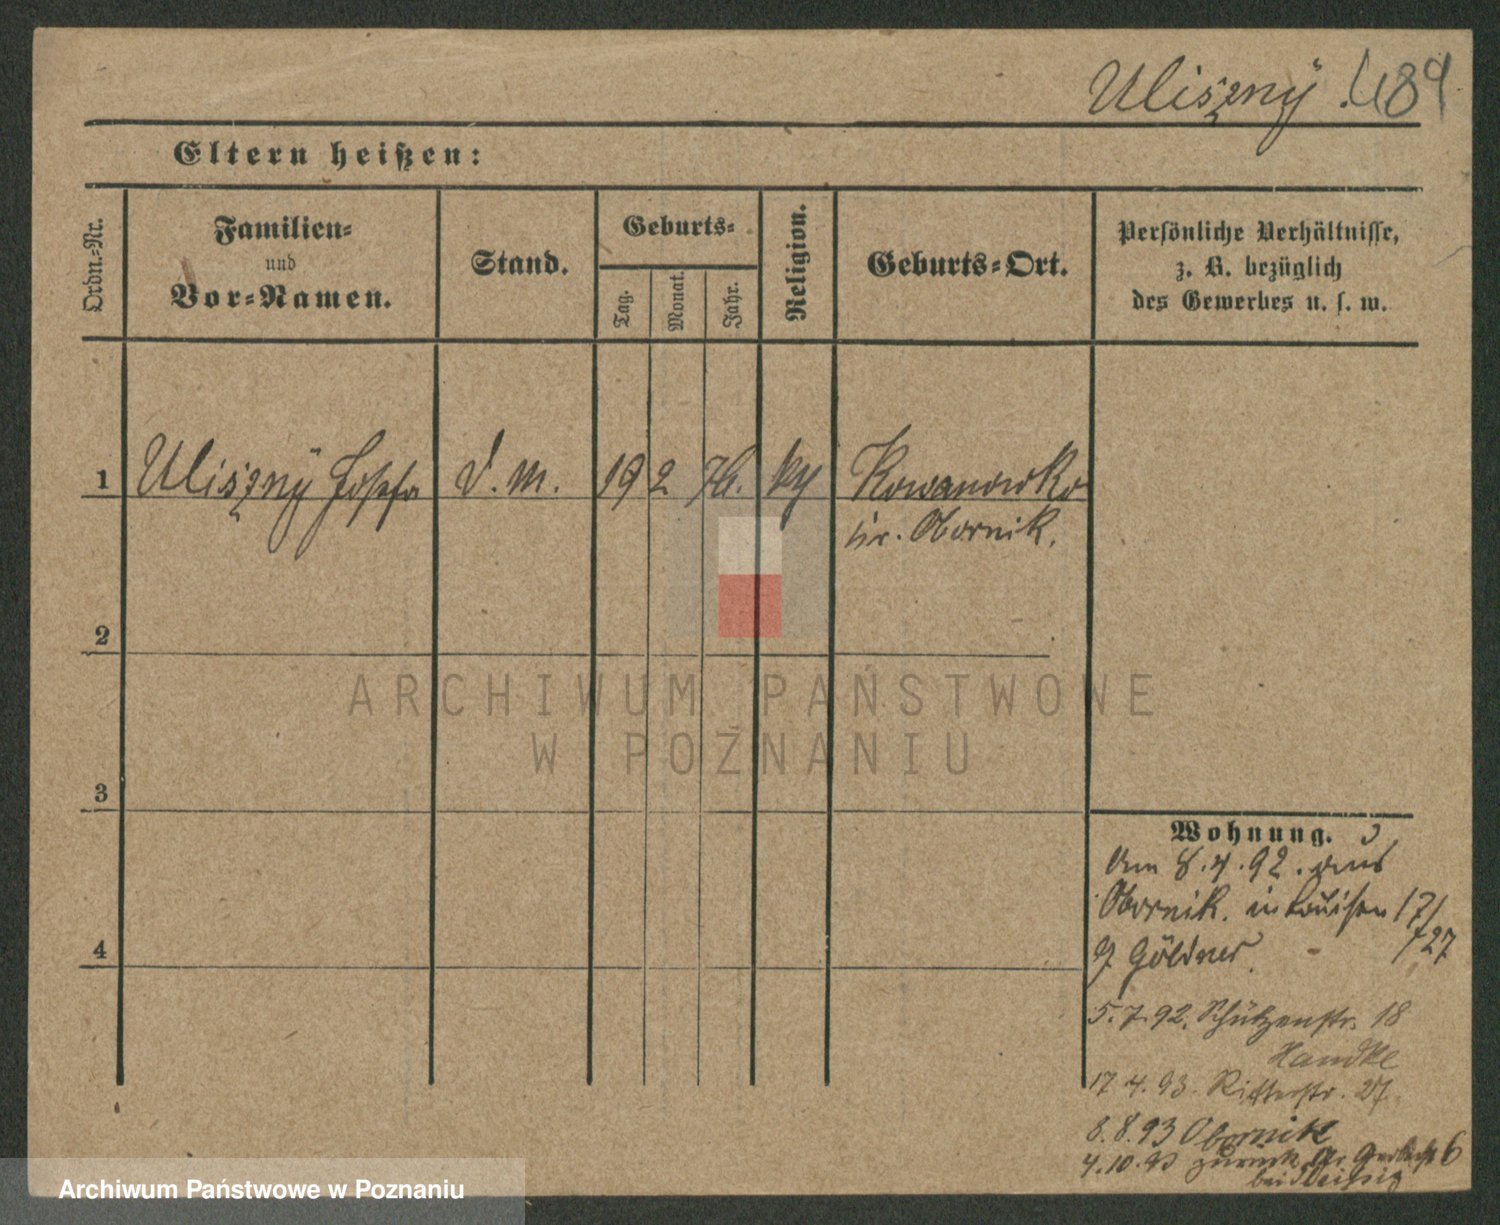 Uliszný 489
Eltern heißen:
Ordn.-Nr.
Familien-
und
Vor-Namen.
Stand.
Geburts-
Tag.
Monat.
Jahr.
Religion.
Geburts-Ort.
Persönliche Verhältnisse,
z. B. bezüglich
des Gewerbes u. s. w.
1 Uliszný Josefa d. M. 19 2 76. ky Kowanowko
kr. Obornik.
2
3
4
Wohnung.
Am 8.4.92. aus
Obornik. in Louisen 17/
/27
Göldner.
5.7.92. Schützenstr. 18
Handke
17 4.93. Ritterstr. 27
8.8.93 Obornik
4.10.93 zurück, Gr. Gerberstr 6
bei
ARCHIWUM PAŃSTWOWE
W POZNANIU
Archiwum Państwowe w Poznaniu